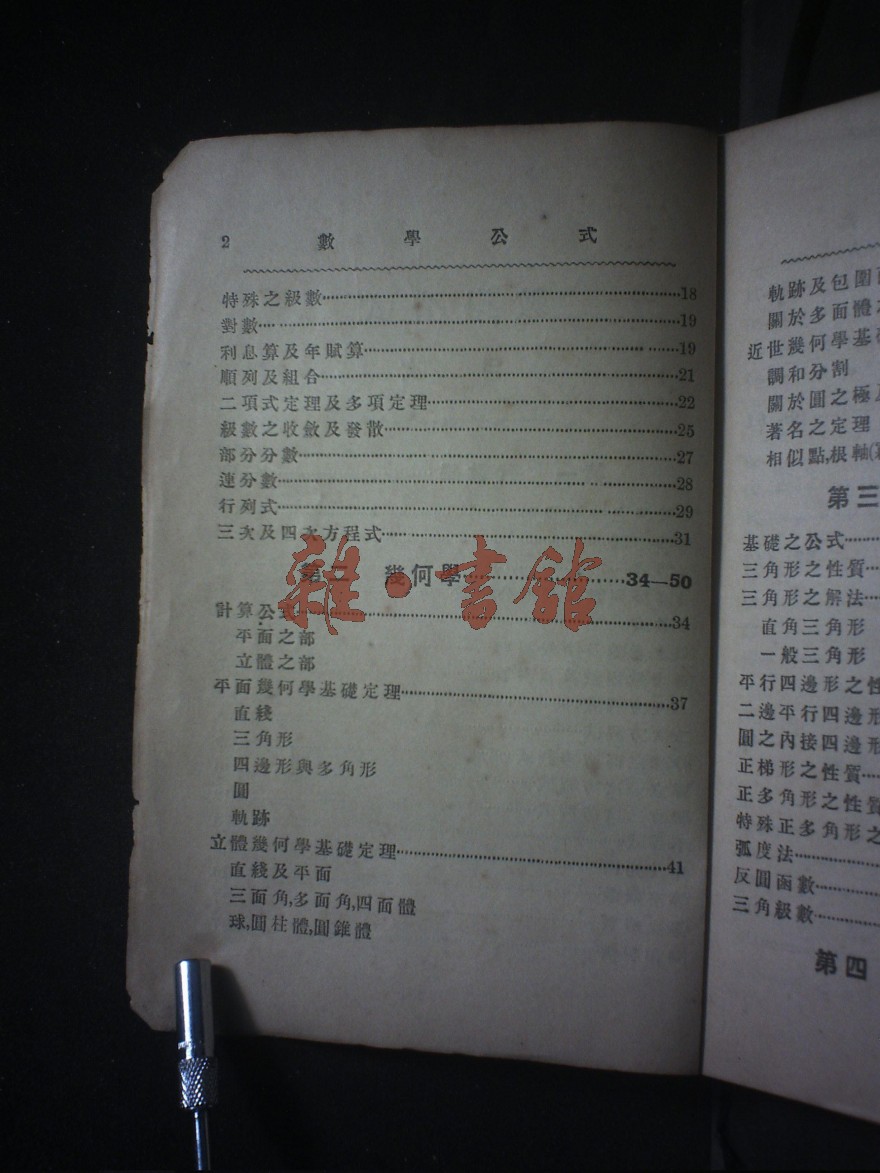 2 數學公式
特殊之級數……18
對數……19
利息算及年賦算……19
順列及組合……21
二項式定理及多項定理……22
級數之收斂及發散……25
部分分數……27
連分數……28
行列式……29
三次及四次方程式……31
第二 幾何學……34—50
計算公式……34
平面之部
立體之部
平面幾何學基礎定理……37
直綫
三角形
四邊形與多角形
圓
軌跡
立體幾何學基礎定理……41
直綫及平面
三面角,多面角,四面體
球,圓柱體,圓錐體
雜·書館
軌跡及包圍
關於多面體
近世幾何學基
調和分割
關於圓之極
著名之定理
相似點,根軸
第三
基礎之公式……
三角形之性質……
三角形之解法……
直角三角形
一般三角形
平行四邊形之性
二邊平行四邊形
圓之內接四邊形
正梯形之性質……
正多角形之性質
特殊正多角形之
弧度法……
反圓函數……
三角級數……
第四